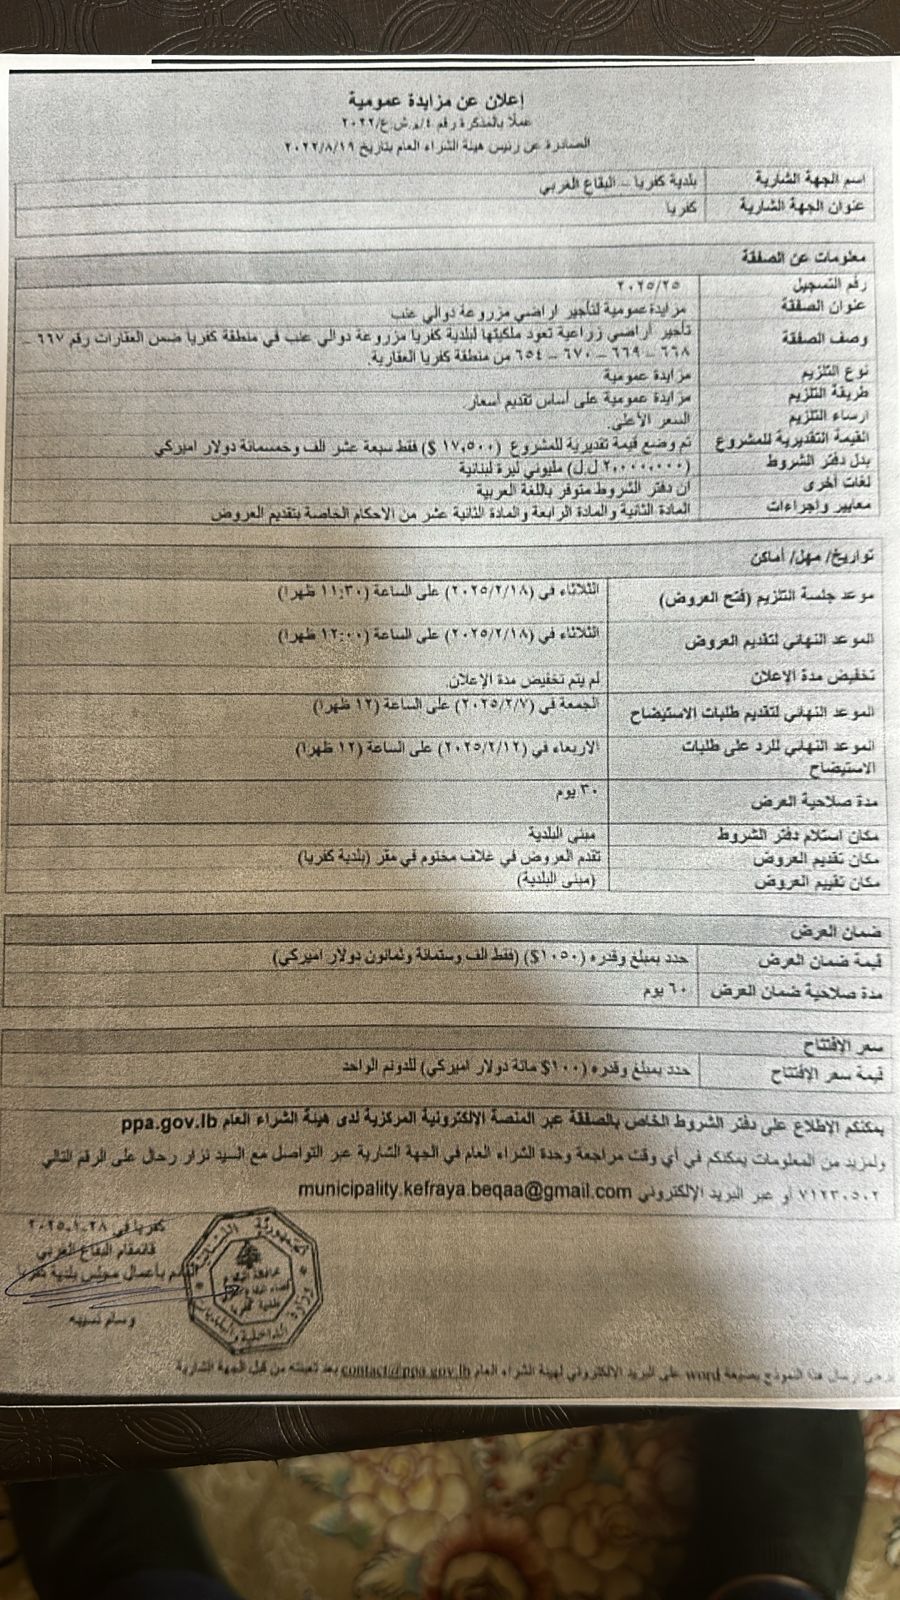 إعلان عن مزايدة عمومية
عملاً بالمذكرة رقم ٤/ه.ش.ع/٢٠٢٢
الصادرة عن رئيس هيئة الشراء العام بتاريخ ٢٠٢٢/٨/١٩
اسم الجهة الشارية بلدية كفريا – البقاع الغربي
عنوان الجهة الشارية كفريا
معلومات عن الصفقة
رقم التسجيل ٢٠٢٥/٢٥
عنوان الصفقة مزايدة عمومية لتأجير اراضي مزروعة دوالي عنب
وصف الصفقة تأجير أراضي زراعية تعود ملكيتها لبلدية كفريا مزروعة دوالي عنب في منطقة كفريا ضمن العقارات رقم ٦٦٧ –
٦٦٨ – ٦٦٩ – ٦٧٠ – ٦٥٤ من منطقة كفريا العقارية.
نوع التلزيم مزايدة عمومية
طريقة التلزيم مزايدة عمومية على أساس تقديم أسعار.
ارساء التلزيم السعر الأعلى.
القيمة التقديرية للمشروع تم وضع قيمة تقديرية للمشروع (١٧,٥٠٠ $) فقط سبعة عشر الف وخمسمائة دولار اميركي
بدل دفتر الشروط (٢,٠٠٠,٠٠٠ ل.ل) مليوني ليرة لبنانية
لغات أخرى ان دفتر الشروط متوفر باللغة العربية
معايير وإجراءات المادة الثانية والمادة الرابعة والمادة الثانية عشر من الاحكام الخاصة بتقديم العروض
تواريخ/ مهل/ أماكن
موعد جلسة التلزيم (فتح العروض) الثلاثاء في (٢٠٢٥/٢/١٨) على الساعة (١١:٣٠ ظهرا)
الموعد النهائي لتقديم العروض الثلاثاء في (٢٠٢٥/٢/١٨) على الساعة (١٢:٠٠ ظهرا)
تخفيض مدة الإعلان لم يتم تخفيض مدة الإعلان.
الموعد النهائي لتقديم طلبات الاستيضاح الجمعة في (٢٠٢٥/٢/٧) على الساعة (١٢ ظهرا)
الموعد النهائي للرد على طلبات الاستيضاح الاربعاء في (٢٠٢٥/٢/١٢) على الساعة (١٢ ظهرا)
مدة صلاحية العرض ٣٠ يوم
مكان استلام دفتر الشروط مبنى البلدية
مكان تقديم العروض تقدم العروض في غلاف مختوم في مقر (بلدية كفريا)
مكان تقييم العروض (مبنى البلدية)
ضمان العرض
قيمة ضمان العرض حدد بمبلغ وقدره (١٠٥٠$) (فقط الف وستمائة وثمانون دولار اميركي)
مدة صلاحية ضمان العرض ٦٠ يوم
سعر الإفتتاح
قيمة سعر الإفتتاح حدد بمبلغ وقدره (١٠٠$ مائة دولار اميركي) للدونم الواحد
يمكنكم الإطلاع على دفتر الشروط الخاص بالصفقة عبر المنصة الإلكترونية المركزية لدى هيئة الشراء العام ppa.gov.lb
ولمزيد من المعلومات يمكنكم في أي وقت مراجعة وحدة الشراء العام في الجهة الشارية عبر التواصل مع السيد نزار رحال على الرقم التالي
٧١٢٣٠٥٠٢ أو عبر البريد الإلكتروني municipality.kefraya.beqaa@gmail.com
كفريا في ٢٠٢٥.١.٢٨
قائمقام البقاع الغربي
القائم بأعمال مجلس بلدية كفريا
وسام نسبيه
الجمهورية اللبنانية
وزارة الداخلية والبلديات
محافظة البقاع
بلدية كفريا
يرجى ارسال هذا النموذج بصيغة word على البريد الالكتروني لهيئة الشراء العام contact@ppa.gov.lb بعد تعبئته من قبل الجهة الشارية